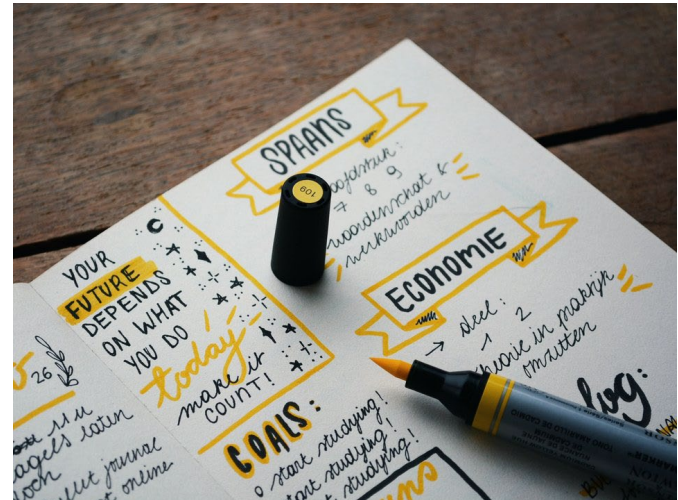 SPAANS
7 8 9
woordenschat &
werkwoorden
ECONOMIE
→ deel:
1 2
theorie in praktijk
omzetten
109
YOUR
FUTURE
DEPENDS
ON WHAT
YOU DO
today
make it
COUNT!
GOALS:
o start studying!
start studying!
studying!
log:
26
11 u
laten
journal
online